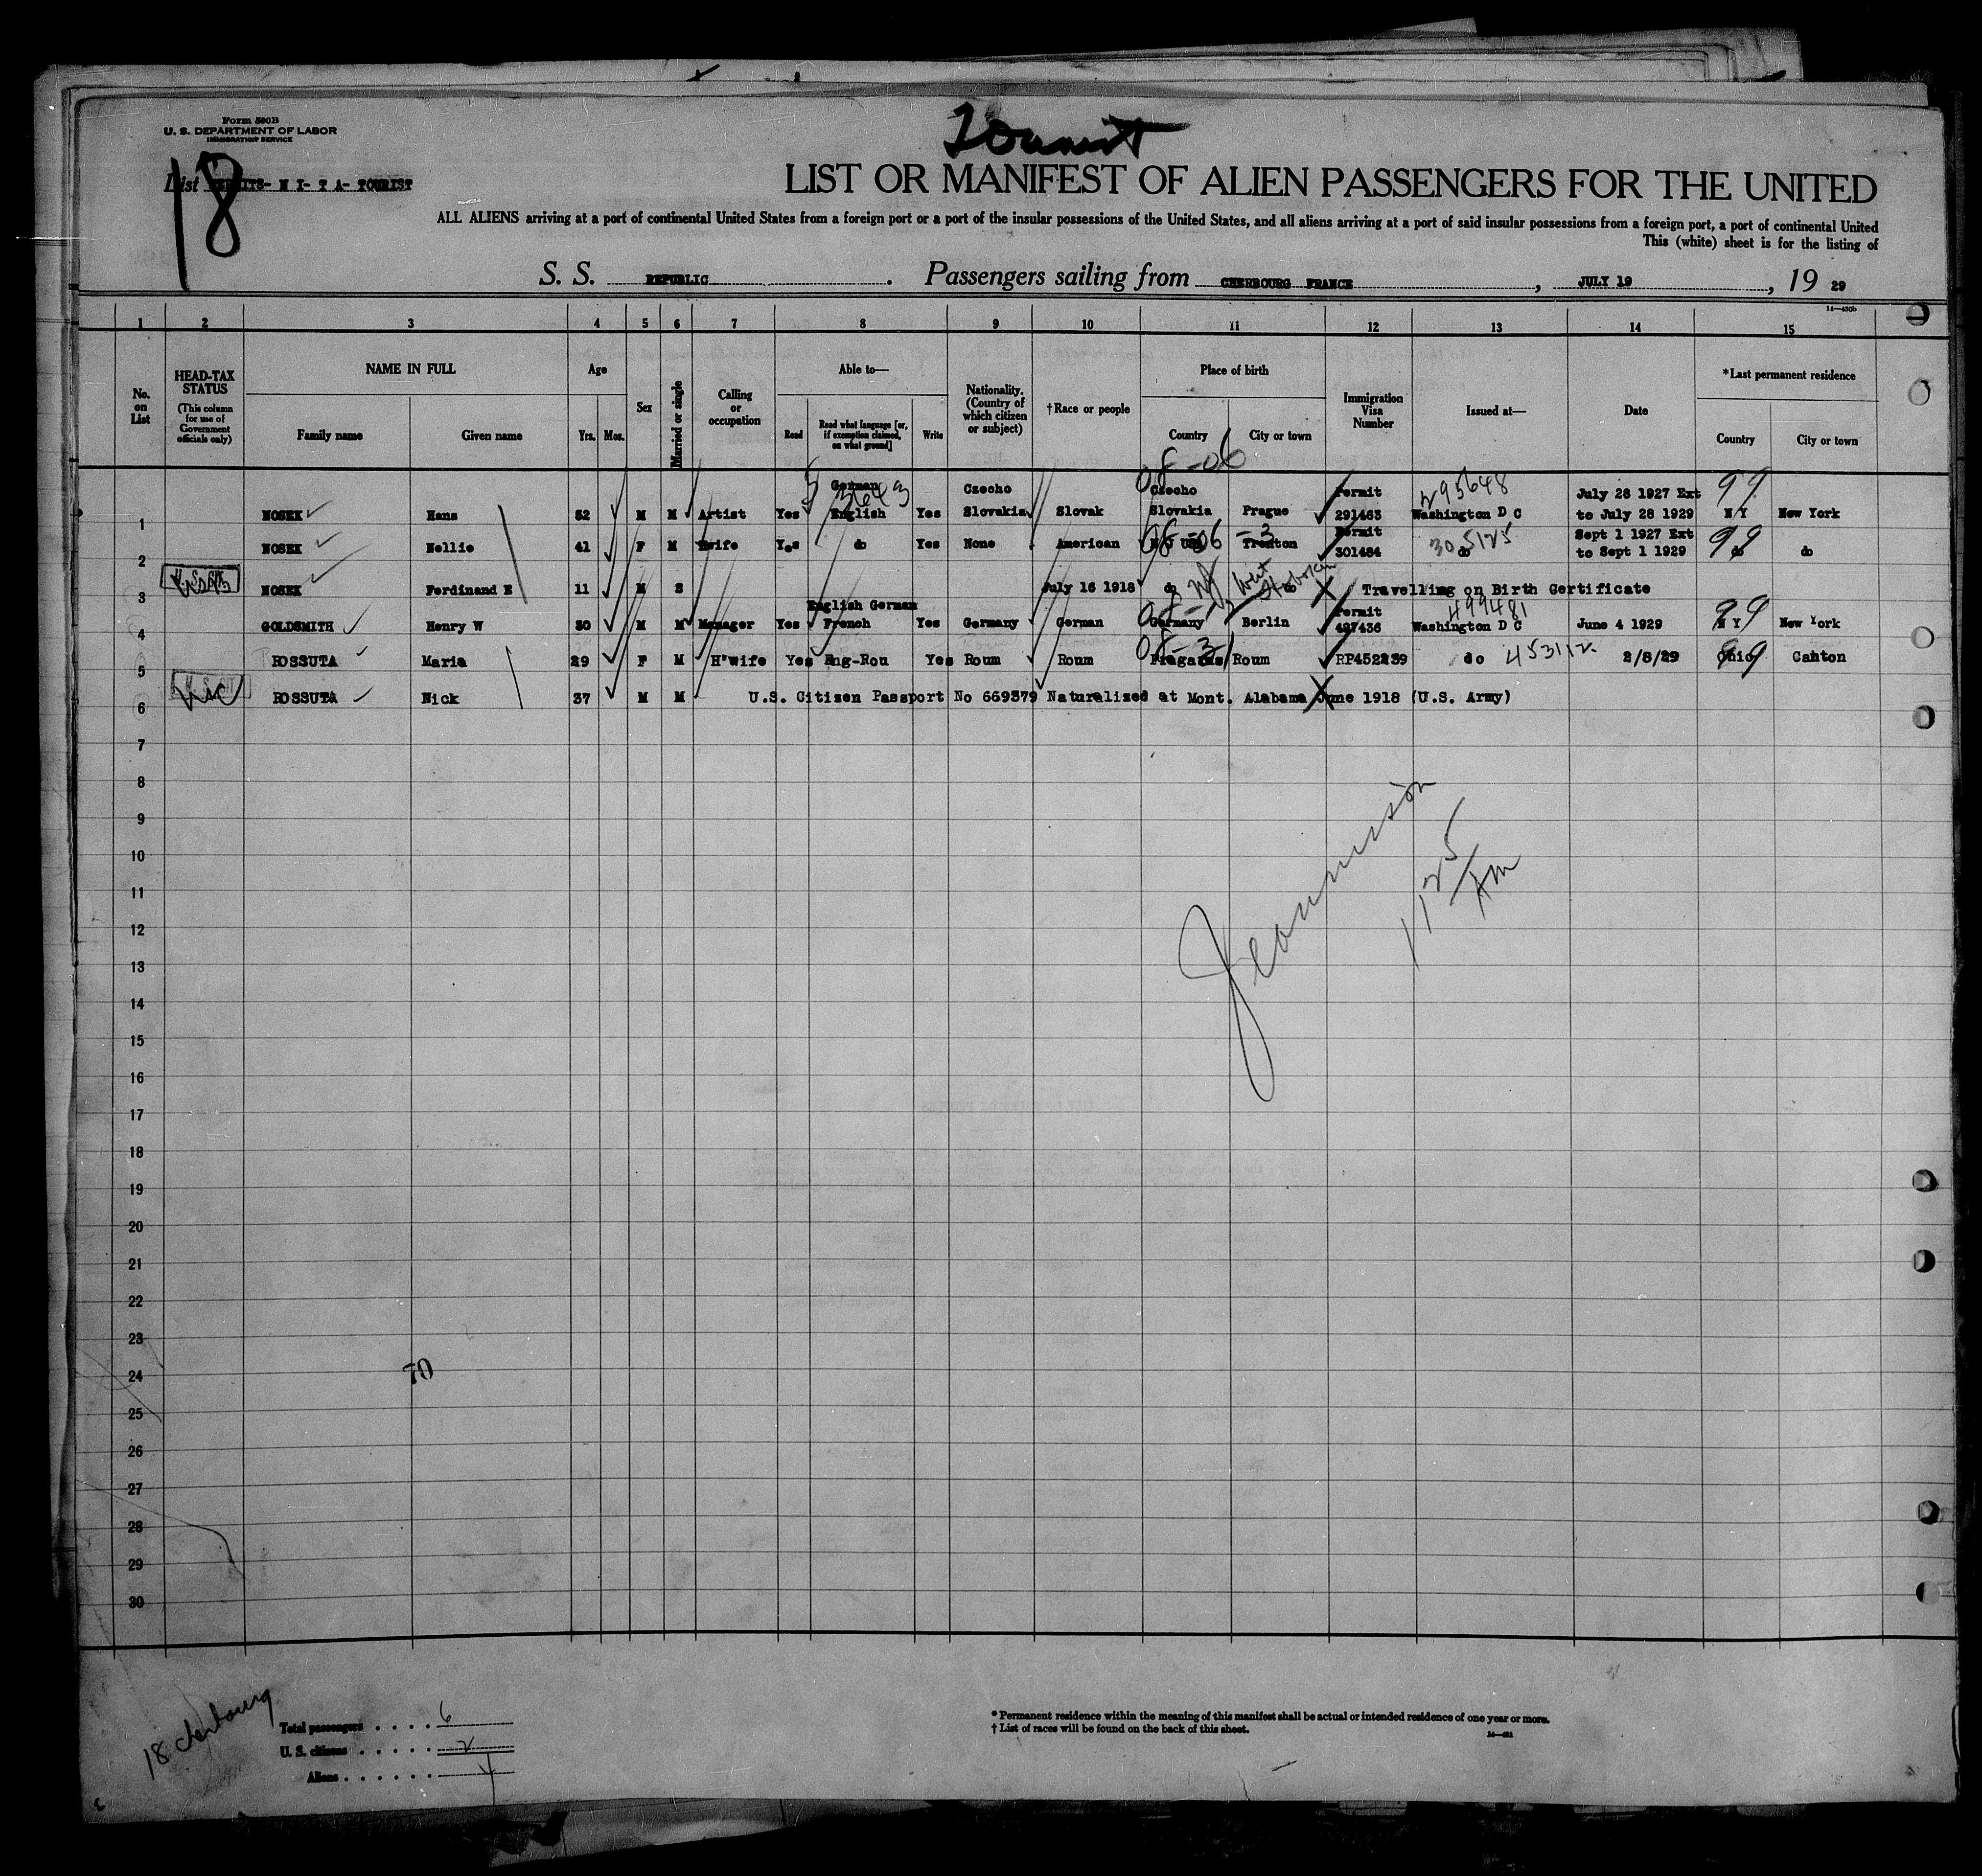 Form 500B
U. S. DEPARTMENT OF LABOR
IMMIGRATION SERVICE
Tourist
List - N I- T A- TOURIST
18
LIST OR MANIFEST OF ALIEN PASSENGERS FOR THE UNITED
ALL ALIENS arriving at a port of continental United States from a foreign port or a port of the insular possessions of the United States, and all aliens arriving at a port of said insular possessions from a foreign port, a port of continental United
This (white) sheet is for the listing of
S. S. REPUBLIC. Passengers sailing from CHERBOURG FRANCE, JULY 19, 19 29
14—430b
1 2 3 4 5 6 7 8 9 10 11 12 13 14 15
No. on List
HEAD-TAX STATUS (This column for use of Government officials only)
NAME IN FULL
Family name Given name
Age
Yrs. Mos.
Sex
Married or single
Calling or occupation
Able to—
Read Read what language [or, if exemption claimed, on what ground] Write
Nationality. (Country of which citizen or subject)
†Race or people
Place of birth
Country City or town
Immigration Visa Number
Issued at—
Date
*Last permanent residence
Country City or town
08-06
German 3643 Czecho Czecho Permit 295648 July 28 1927 Ext 99
1 NOSEK Hans 52 M M Artist Yes English Yes Slovakia Slovak Slovakia Prague 291463 Washington D C to July 28 1929 N Y New York
08-06 -3 Permit 305125 Sept 1 1927 Ext 99
2 NOSEK Nellie 41 F M Hwife Yes do Yes None American N J USA Trenton 301484 do to Sept 1 1929 do do
NJ West Hoboken
3 NOSEK Ferdinand E 11 M S July 16 1918 do do Travelling on Birth Certificate
English German Permit 499481 99
4 GOLDSMITH Henry W 30 M M Manager Yes French Yes Germany German Germany Berlin 497436 Washington D C June 4 1929 N Y New York
08-31
5 ROSSUTA Maria 29 F M H'wife Yes Eng-Rou Yes Roum Roum Roum RP452239 do 453112 2/8/29 Ohio 99 Canton
6 USC ROSSUTA Nick 37 M M U.S. Citizen Passport No 669379 Naturalized at Mont. Alabama June 1918 (U.S. Army)
7
8
9
10
11
1125 AM
12
13
14
15
16
17
18
19
20
21
22
23
24 70
25
26
27
28
29
30
18 Cherbourg
Total passengers . . . . 6
U. S. citizens . . . . . 2
Aliens . . . . . . 4
* Permanent residence within the meaning of this manifest shall be actual or intended residence of one year or more.
† List of races will be found on the back of this sheet.